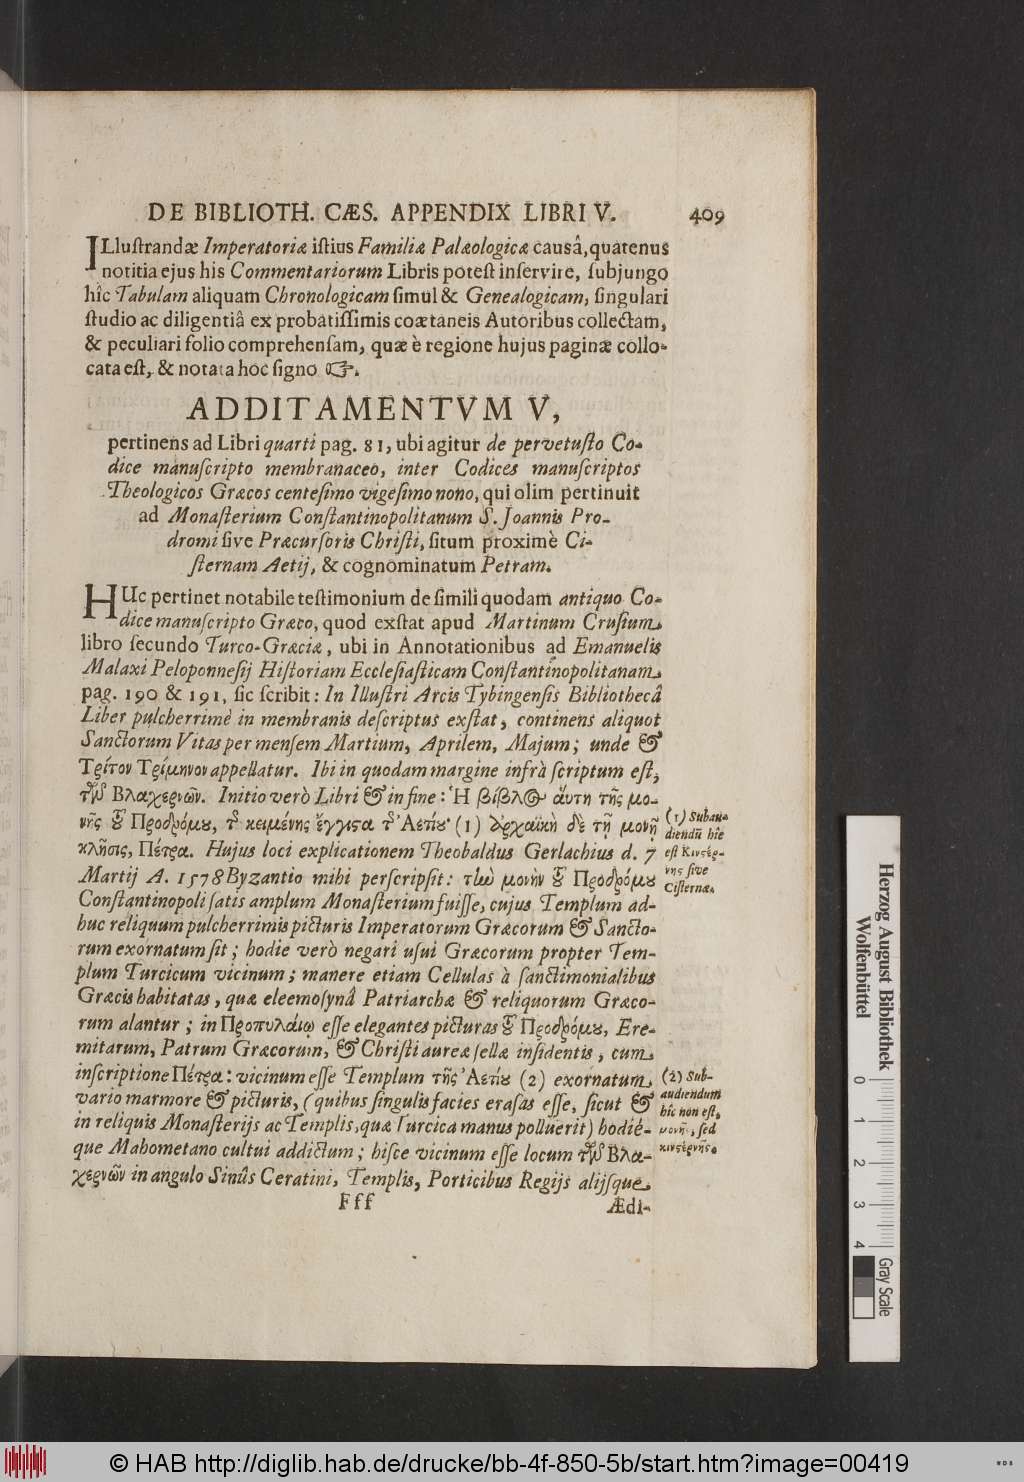 DE BIBLIOTH. CÆS. APPENDIX LIBRI V. 409
ILluſtrandæ Imperatoriæ iſtius Familiæ Palæologicæ causâ, quatenus
notitia ejus his Commentariorum Libris poteſt inſervire, ſubjungo
hîc Tabulam aliquam Chronologicam ſimul & Genealogicam, ſingulari
ſtudio ac diligentiâ ex probatiſſimis coætaneis Autoribus collectam,
& peculiari folio comprehenſam, quæ è regione hujus paginæ collo-
cata eſt, & notata hoc ſigno ☞.
ADDITAMENTVM V,
pertinens ad Libri quarti pag. 81, ubi agitur de pervetuſto Co-
dice manuſcripto membranaceo, inter Codices manuſcriptos
Theologicos Græcos centeſimo vigeſimo nono, qui olim pertinuit
ad Monaſterium Conſtantinopolitanum S. Joannis Pro-
dromi ſive Præcurſoris Chriſti, ſitum proximè Ci-
ſternam Aetij, & cognominatum Petram.
HUc pertinet notabile teſtimonium de ſimili quodam antiquo Co-
dice manuſcripto Græco, quod exſtat apud Martinum Cruſium
libro ſecundo Turco-Græciæ, ubi in Annotationibus ad Emanuelis
Malaxi Peloponneſij Hiſtoriam Eccleſiaſticam Conſtantinopolitanam
pag. 190 & 191, ſic ſcribit: In Illuſtri Arcis Tybingenſis Bibliothecâ
Liber pulcherrimè in membranis deſcriptus exſtat, continens aliquot
Sanctorum Vitas per menſem Martium, Aprilem, Majum; unde &
Τρίτον Τρίμηνον appellatur. Ibi in quodam margine infrà ſcriptum eſt,
τῶν Βλαχερνῶν. Initio verò Libri & in fine: Ἡ βίβλος αὕτη τῆς μο-
νῆς τοῦ Προδρόμου, τῆς κειμένης ἔγγιστα τῆς Ἀετίου· (1) ἀρχαϊκὴ δὲ τῇ μονῇ
κλῆσις, Πέτρα. Hujus loci explicationem Theobaldus Gerlachius d. 7
Martij A. 1578 Byzantio mihi perſcripſit: τὴν μονὴν τοῦ Προδρόμου
Conſtantinopoli ſatis amplum Monaſterium fuiſſe, cujus Templum ad-
huc reliquum pulcherrimis picturis Imperatorum Græcorum & Sancto-
rum exornatum ſit; hodie verò negari uſui Græcorum propter Tem-
plum Turcicum vicinum; manere etiam Cellulas à ſanctimonialibus
Græcis habitatas, quæ eleemoſynâ Patriarchæ & reliquorum Græco-
rum alantur; in Προπυλαίῳ eſſe elegantes picturas τοῦ Προδρόμου, Ere-
mitarum, Patrum Græcorum, & Chriſti aureæ ſellæ inſidentis, cum
inſcriptione Πέτρα: vicinum eſſe Templum τῆς Ἀετίου (2) exornatum
vario marmore & picturis, (quibus ſingulis facies eraſas eſſe, ſicut &
in reliquis Monaſterijs ac Templis, quæ Turcica manus polluerit) hodié-
que Mahometano cultui addictum; hiſce vicinum eſſe locum τῶν Βλα-
χερνῶν in angulo Sinûs Ceratini, Templis, Porticibus Regijs alijſque
Fff Ædi-
(1) Subau-
diendū hîc
eſt Κινστέρ-
νης ſive
Ciſternæ.
(2) Sub-
audiendum
hîc non eſt,
μονῆς, ſed
κινστέρνης.
Herzog August Bibliothek
Wolfenbüttel
0 1 2 3 4
Gray Scale
© HAB http://diglib.hab.de/drucke/bb-4f-850-5b/start.htm?image=00419